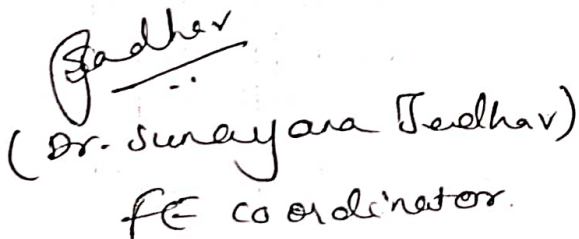 SJadhav
(Dr. Sunayana Jadhav)
FE coordinator.